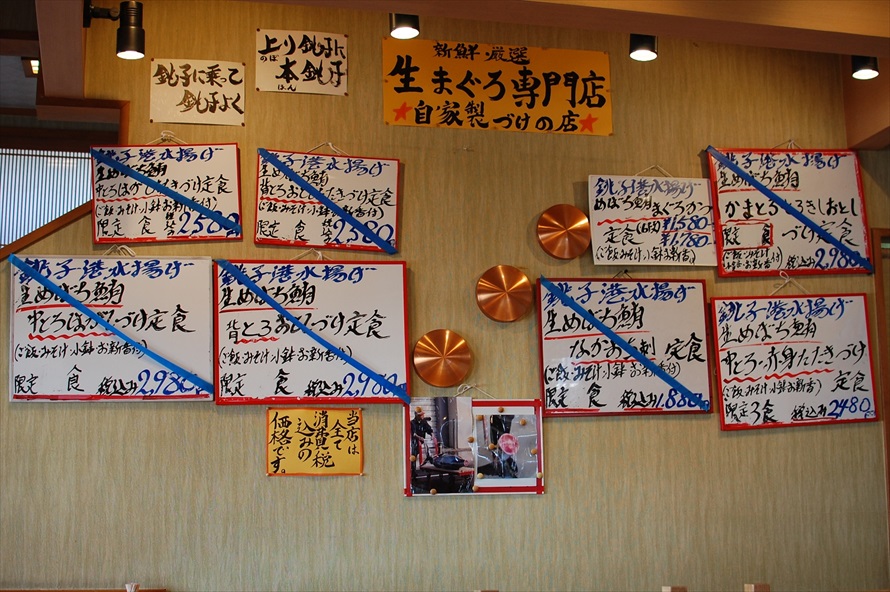 銚子に乗って
銚子よく
上り銚子に
のぼ
本銚子
ほん
新鮮・厳選
生まぐろ専門店
★自家製づけの店★
銚子港水揚げ
生めばち鮪
中とろほがしづけ定食
(ご飯・みそ汁・小鉢・お新香付)
限定 食 税込み 2,580
銚子港水揚げ
生めばち鮪
(ご飯・みそ汁・小鉢・お新香付)
限定 食 2,380
銚子港水揚げ
めばち鮪まぐろかつ
定食 ¥1,580
¥1,780
(ご飯・みそ汁・小鉢・お新香付)
銚子港水揚げ
生めばち鮪
かまとろ
づけ定食
限定 食
2,980
銚子港水揚げ
生めばち鮪
中とろほがしづけ定食
(ご飯・みそ汁・小鉢・お新香付)
限定 食 税込み 2,980
銚子港水揚げ
生めばち鮪
背とろ づけ定食
(ご飯・みそ汁・小鉢・お新香付)
限定 食 税込み 2,980
銚子港水揚げ
生めばち鮪
なかおち刺 定食
(ご飯・みそ汁・小鉢・お新香付)
限定 食 税込み 1,880
銚子港水揚げ
生めばち鮪
中とろ・赤身たたきづけ
(ご飯・みそ汁・小鉢・お新香付) 定食
限定3食 税込み 2480
当店は
全て
消費税
込みの
価格です。